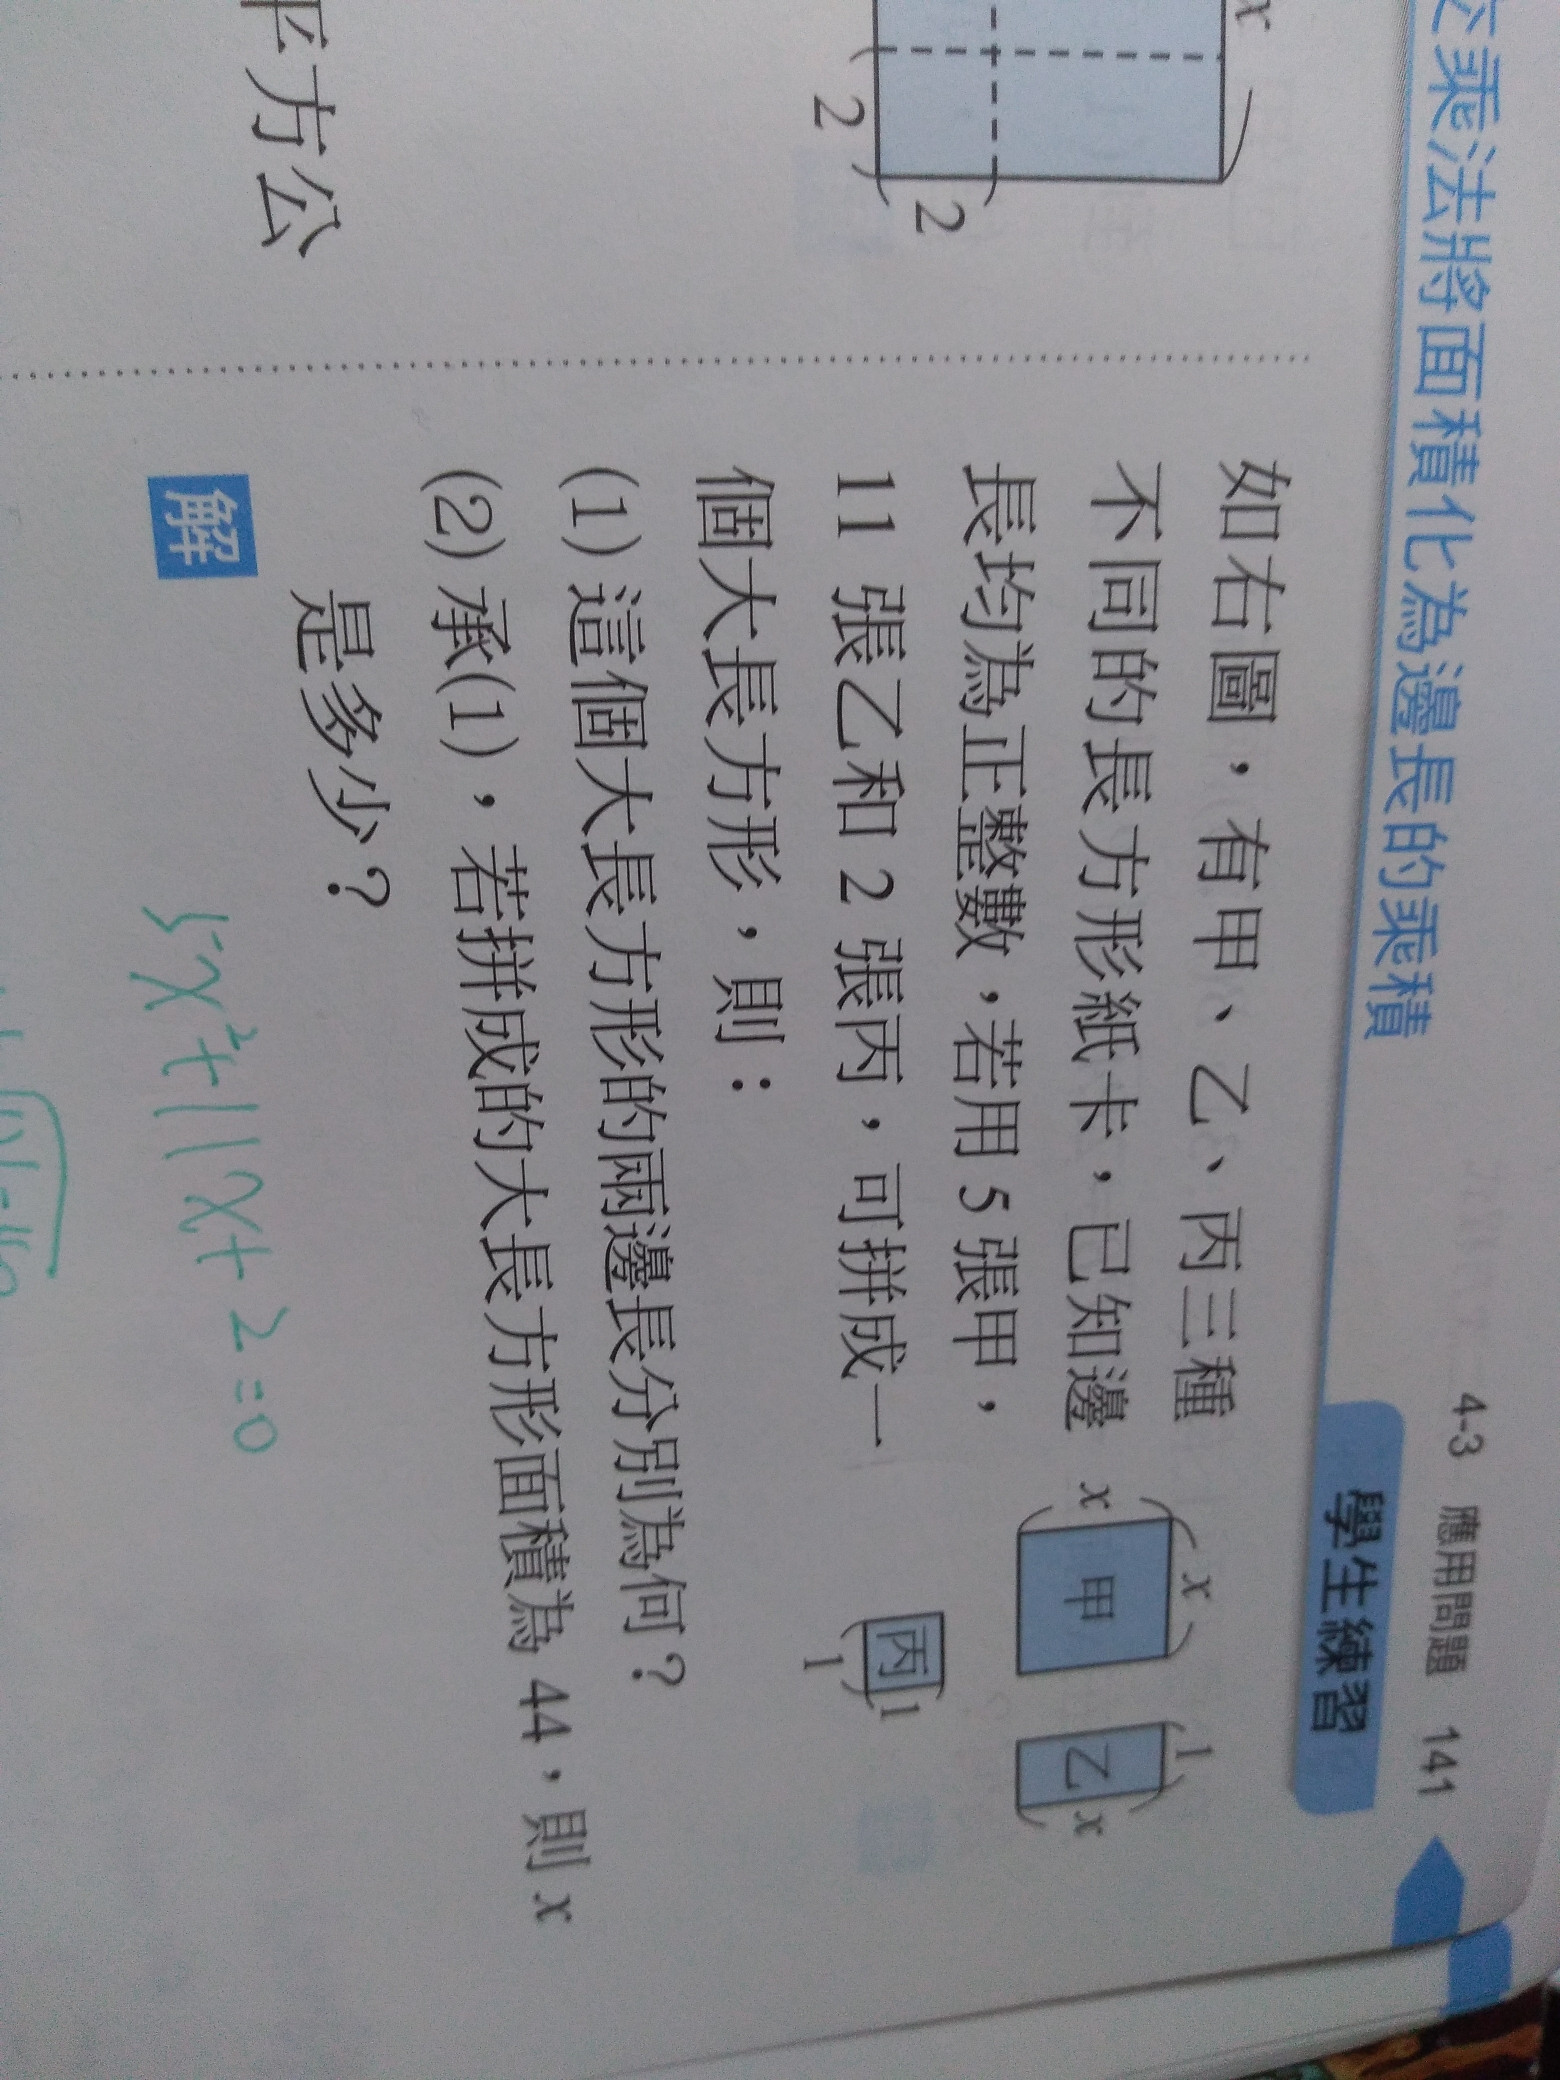 乘法將面積化為邊長的乘積
4-3 應用問題 141
學生練習
x
2
2
平方公
如右圖，有甲、乙、丙三種
不同的長方形紙卡，已知邊
長均為正整數，若用 5 張甲，
11 張乙和 2 張丙，可拼成一
個大長方形，則：
x
x
甲
1
乙
x
丙
1
1
(1) 這個大長方形的兩邊長分別為何？
(2) 承(1)，若拼成的大長方形面積為 44，則 x
是多少？
解
5x²+11x+2=0